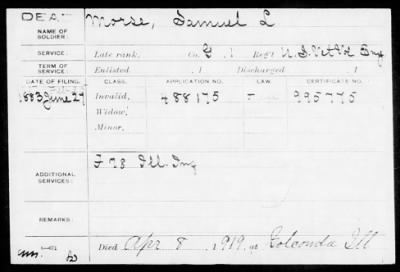 DEAD
Morse, Samuel L
NAME OF
SOLDIER:
SERVICE:
Late rank, Co. G, 1 Reg't U.S. Vet Vol Eng
TERM OF
SERVICE:
Enlisted , 1 Discharged , 1
DATE OF FILING.
CLASS. APPLICATION NO. LAW. CERTIFICATE NO.
1883 June 27 Invalid, 488175 995775
Widow,
Minor,
ADDITIONAL
SERVICES:
F 78 Ill. Inf
REMARKS:
Died Apr 8, 1919, at Golconda Ill